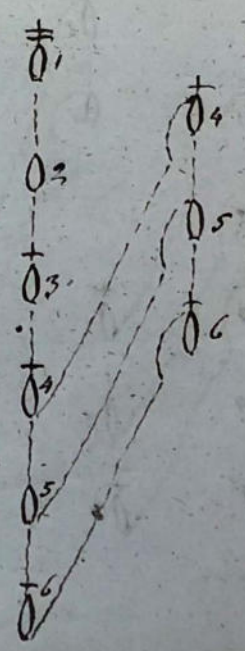 1
2
3
4
5
6
4
5
6